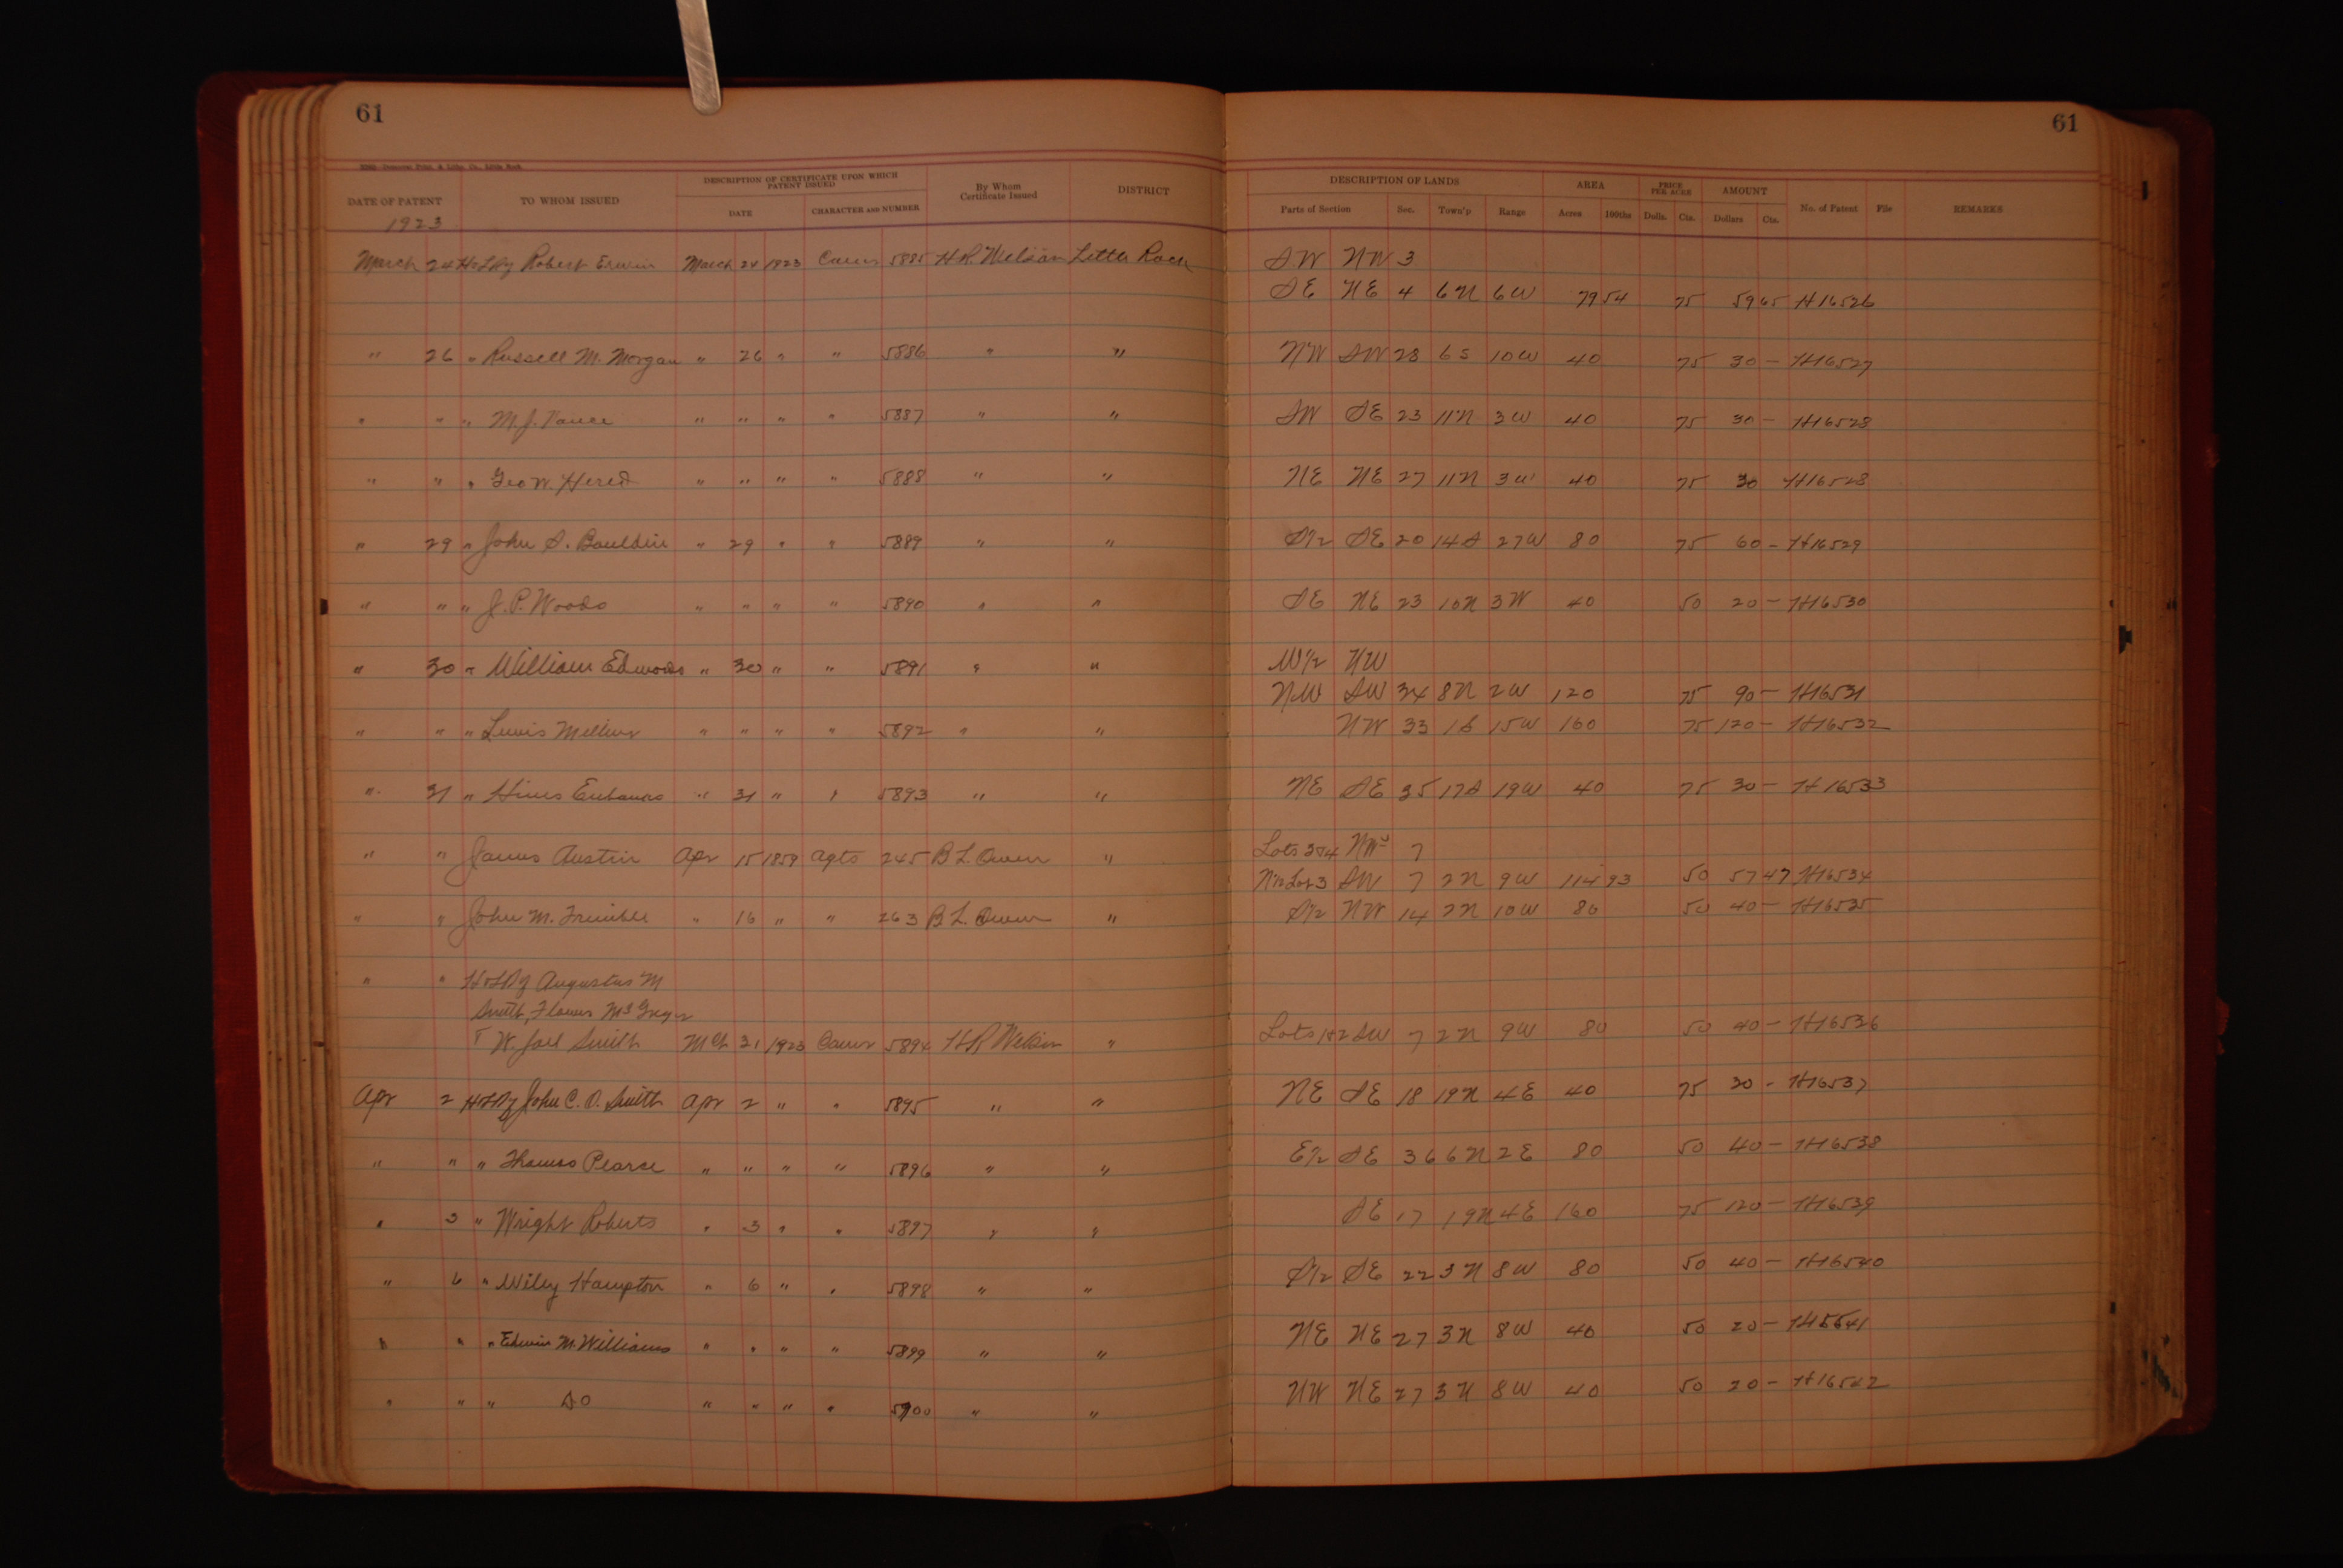 61 61
DATE OF PATENT TO WHOM ISSUED DESCRIPTION OF CERTIFICATE UPON WHICH PATENT ISSUED DATE CHARACTER AND NUMBER By Whom Certificate Issued DISTRICT DESCRIPTION OF LANDS Parts of Section Sec. Town'p Range AREA Acres 100ths PRICE PER ACRE Dolls. Cts. AMOUNT Dollars Cts. No. of Patent File REMARKS
1923
March 24 Robert Erwin March 24 1923 5885 H.R. Wilson Little Rock SW NW 3
SE NE 4 6N 6W 79 54 75 59 65 H16526
" 26 " Russell M. Morgan " 26 " " 5886 " " NW SW 28 6S 10W 40 75 30 — H16527
" " " M.J. " " " " 5887 " " SW SE 23 11N 3W 40 75 30 — H16528
" " " Geo W. Hered " " " " 5888 " " NE NE 27 11N 3W 40 75 30 H16528
" 29 " John S. Bouldin " 29 " " 5889 " " S1/2 SE 20 14S 27W 80 75 60 — H16529
" " " J.P. Woods " " " " 5890 " " SE NE 23 10N 3W 40 50 20 — H16530
" 30 " William Edwards " 30 " " 5891 " " W1/2 NW
NW SW 34 8N 2W 120 75 90 — H16531
" " " Lewis " " " " 5892 " " NW 33 1S 15W 160 75 120 — H16532
" 31 " Hines Eubanks " 31 " " 5893 " " NE SE 35 17S 19W 40 75 30 — H16533
" " James Austin Apr 15 1859 Agts 245 B L. Owen " Lots 3 & 4 NW 7
N1/2 Lot 3 SW 7 2N 9W 114 93 50 57 47 H16534
" " John M. Trimble " 16 " " 263 B L. Owen " S1/2 NW 14 2N 10W 80 50 40 — H16535
" " Augustus M
Smith,
& W. Joel Smith Mch 31 1923 5894 H R Wilson " Lots 1 & 2 SW 7 2N 9W 80 50 40 — H16536
Apr 2 John C. O. Smith Apr 2 " " 5895 " " NE SE 18 19N 4E 40 75 30 - H16537
" " " Thomas Pearce " " " " 5896 " " E1/2 SE 36 6N 2E 80 50 40 — H16538
" 3 " Wright Roberts " 3 " " 5897 " " SE 17 19N 4E 160 75 120 — H16539
" 6 " Wiley Hampton " 6 " " 5898 " " S1/2 SE 22 3N 8W 80 50 40 — H16540
" " " Edwin M. Williams " " " " 5899 " " NE NE 27 3N 8W 40 50 20 —
" " " Do " " " " 5900 " " NW NE 27 3N 8W 40 50 20 — H16542